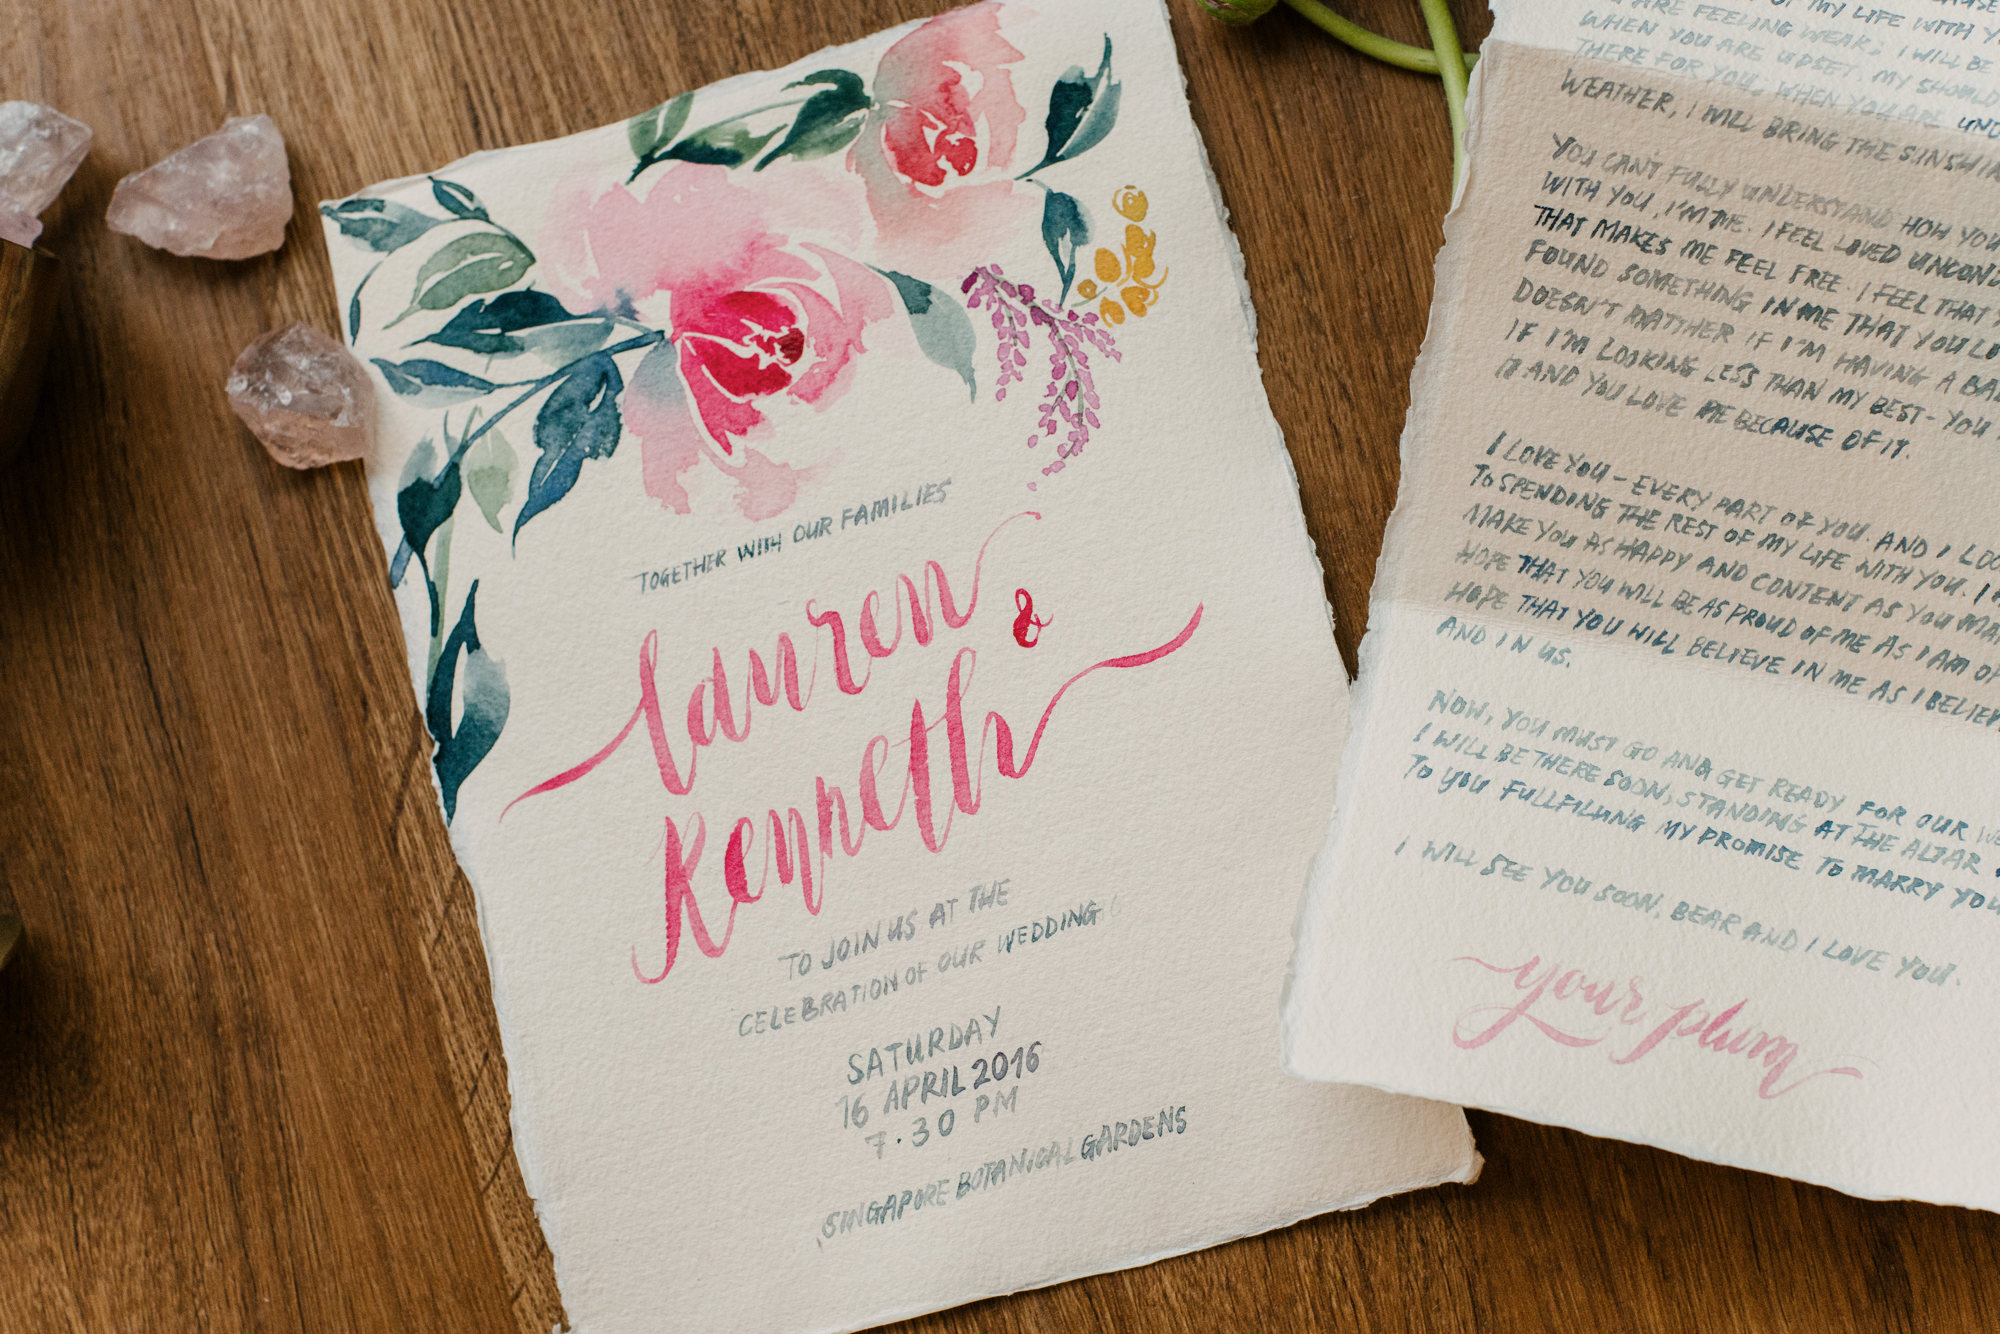 TOGETHER WITH OUR FAMILIES
lauren &
Kenneth
TO JOIN US AT THE
CELEBRATION OF OUR WEDDING
SATURDAY
16 APRIL 2016
7.30 PM
SINGAPORE BOTANICAL GARDENS
OF MY LIFE WITH
ARE FEELING WEAK, I WILL BE
WHEN YOU ARE UPSET, MY
THERE FOR YOU. WHEN YOU ARE
WEATHER, I WILL BRING THE
YOU CAN'T FULLY UNDERSTAND HOW YOU
WITH YOU, I'M ME. I FEEL LOVED
THAT MAKES ME FEEL FREE. I FEEL THAT
FOUND SOMETHING IN ME THAT YOU
DOESN'T MATTHER IF I'M HAVING A
IF I'M LOOKING LESS THAN MY BEST - YOU
IT AND YOU LOVE ME BECAUSE OF IT.
I LOVE YOU - EVERY PART OF YOU. AND I
TO SPENDING THE REST OF MY LIFE WITH YOU. I
MAKE YOU AS HAPPY AND CONTENT AS YOU
HOPE THAT YOU WILL BE AS PROUD OF ME AS I AM
HOPE THAT YOU WILL BELIEVE IN ME AS I
AND IN US.
NOW, YOU MUST GO AND GET READY FOR OUR
I WILL BE THERE SOON, STANDING AT THE ALTAR
TO YOU FULLFILLING MY PROMISE TO MARRY
I WILL SEE YOU SOON, BEAR AND I LOVE YOU.
your plum